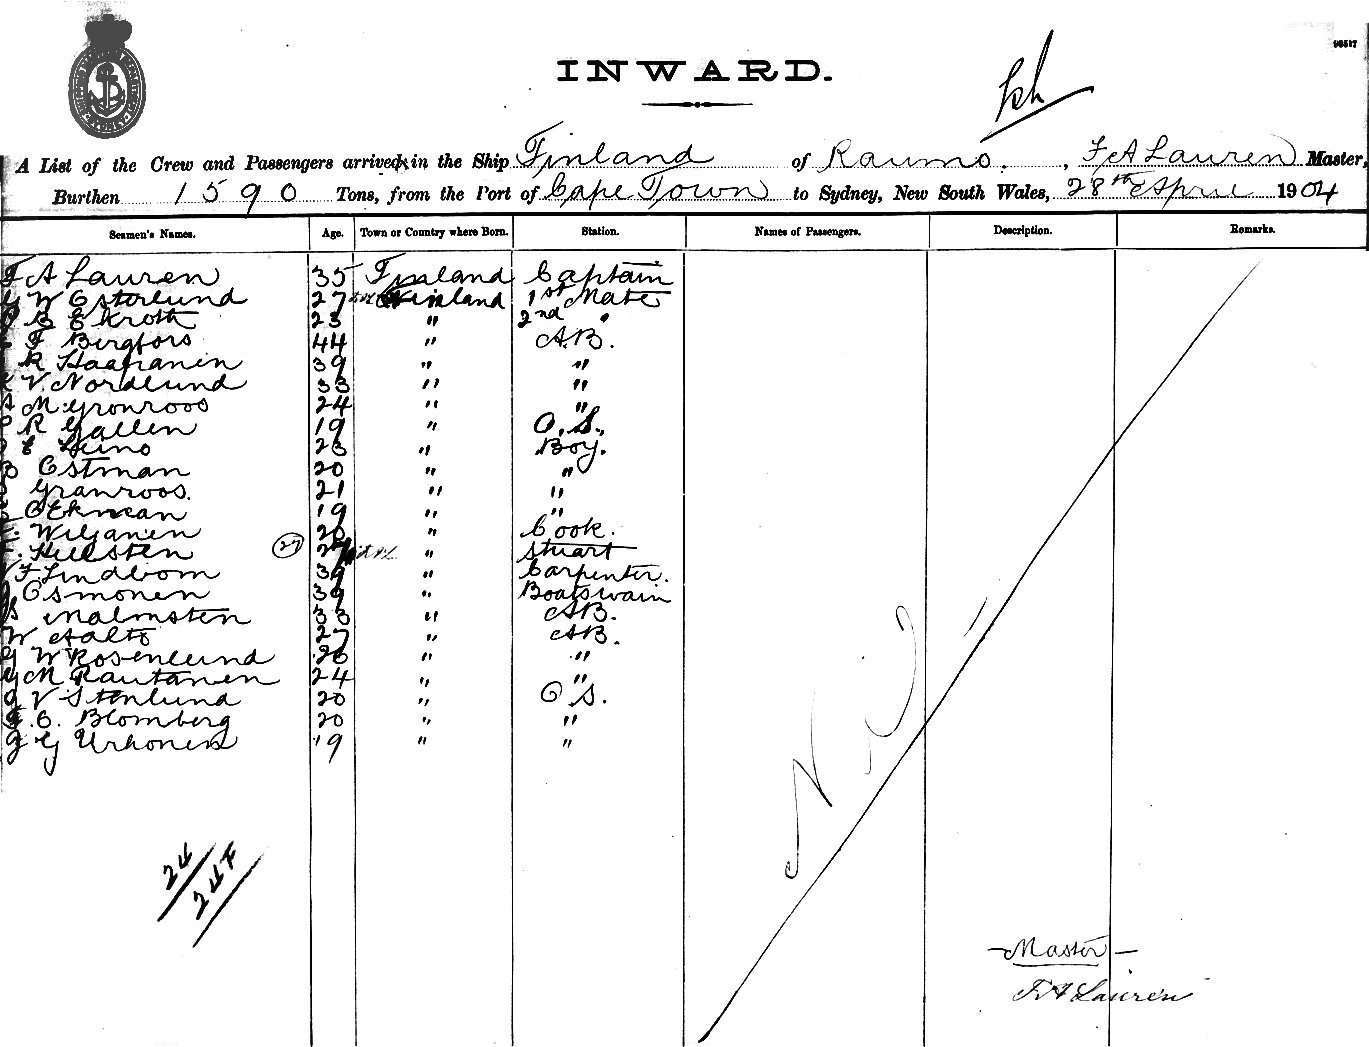 96517
INWARD.
A List of the Crew and Passengers arrived in the Ship Finland of Raumo, F A Lauren Master,
Burthen 1590 Tons, from the Port of Cape Town to Sydney, New South Wales, 28th April 1904
Seamen's Names. Age. Town or Country where Born. Station. Names of Passengers. Description. Remarks.
F A Lauren 35 Finland Captain
W Osterlund 27 Finland 1st Mate
B Ekroth 23 " 2nd "
F Bergfors 44 " A.B.
K Haapanen 39 " "
K V. Nordlund 33 " "
M Gronroos 24 " "
R Gallen 19 " O.S.,
E Leino 23 " Boy.
Ostman 20 " "
Granroos. 21 " "
O Ekman 19 " "
Wiljanen 20 " Cook.
Hellsten (27) 27 " Stuart
F. Lindbom 39 " Carpenter.
Osmonen 39 " Boatswain
Malmsten 33 " AB.
W Aalto 27 " AB.
G W Rosenlund 26 " "
G M Rautanen 24 " "
J V Stenlund 20 " O S.
F. E. Blomberg 20 " "
J G Urhonen 19 " "
Nil
24
24 F
Master
F A Lauren